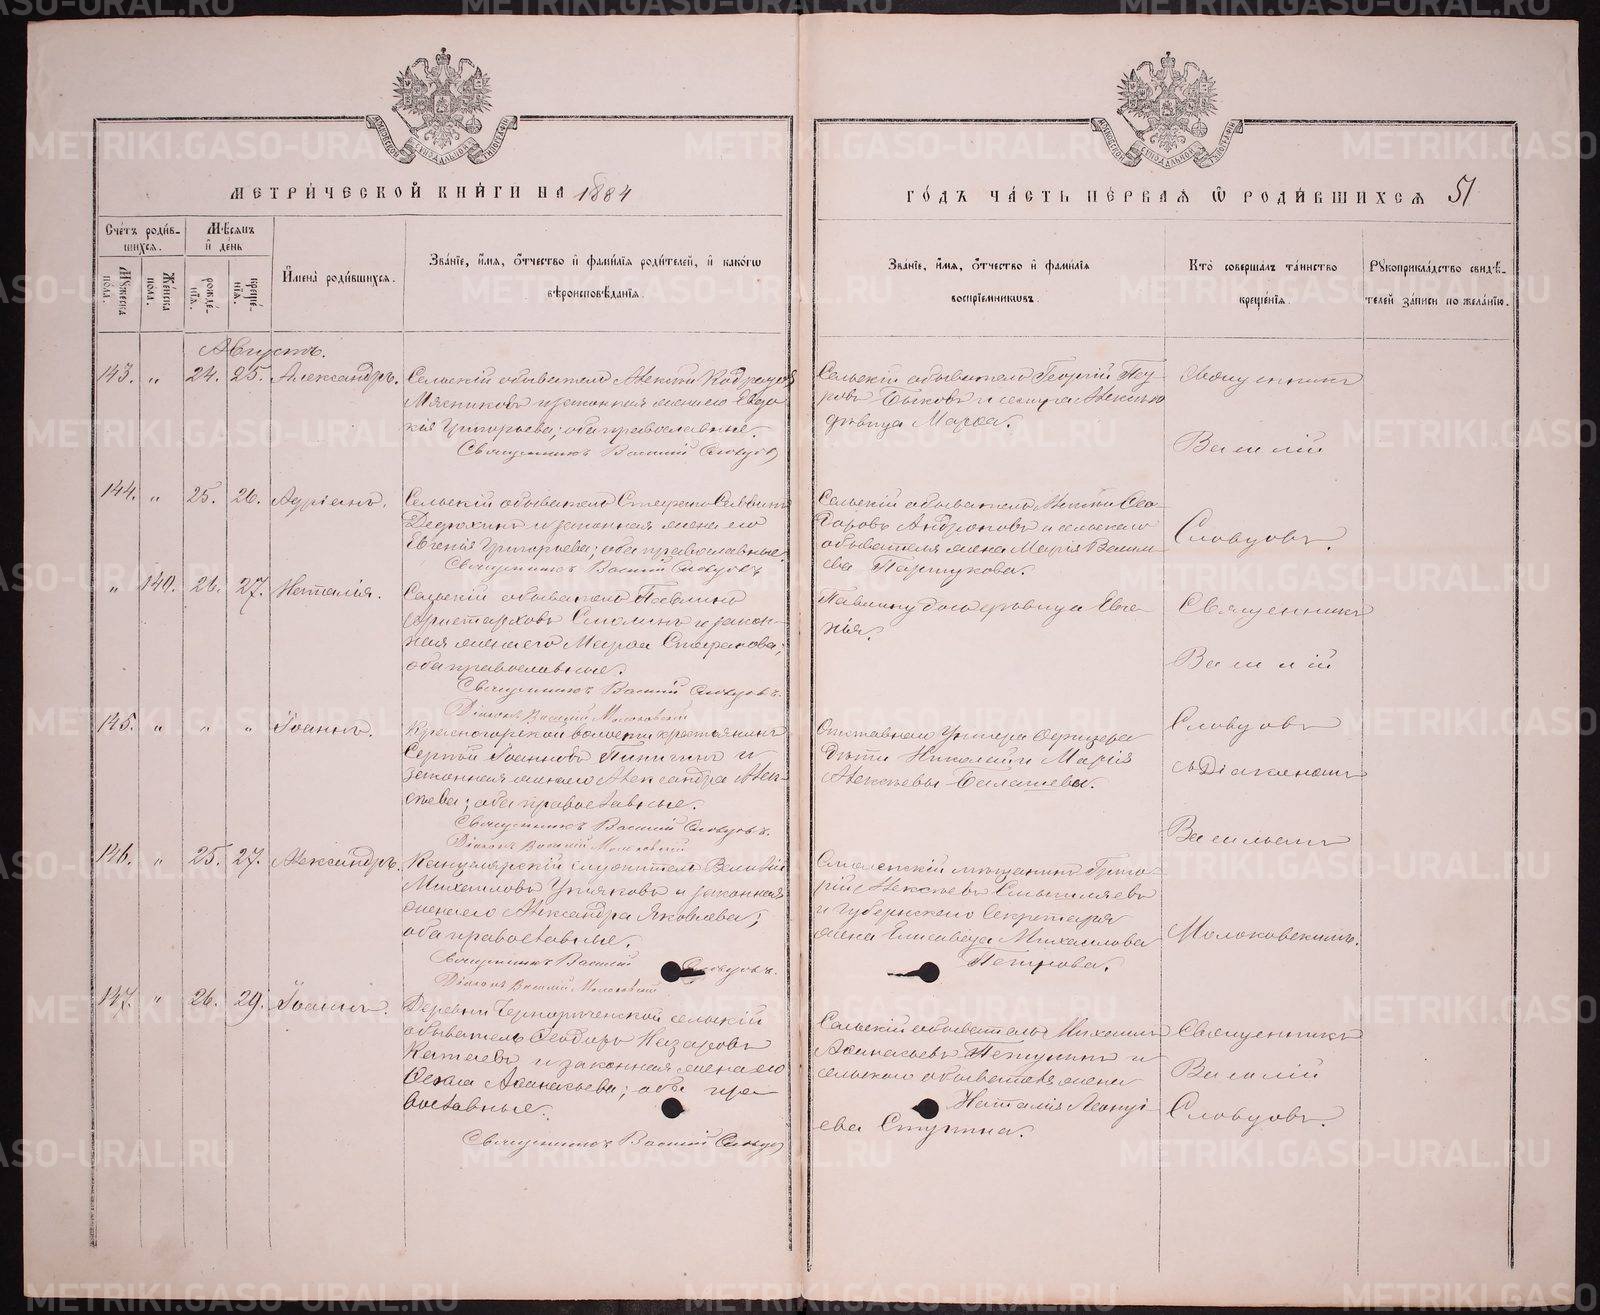 МЕТРИ́ЧЕСКОЙ КНИ́ГИ НА 1884
ГО́ДЪ ЧА́СТЬ ПЕ́РВАЯ Ѡ РОДИ́ВШИХСЯ 51
Сче́тъ роди́в-
шихся.
Мѣ́сяцъ
и҆ де́нь
Му́жеска
по́ла.
Же́нска
по́ла.
рожде́-
нїѧ.
креще́-
нїѧ.
И҆мена̀ роди́вшихся.
Зва́нїе, и҆́мя, ѻ҆́тчество и҆ фами́лїя роди́телей, и҆ како́гѡ
вѣроисповѣ́данїя.
Зва́нїе, и҆́мя, ѻ҆́тчество и҆ фами́лїя
воспрїе́мникѡвъ.
Кто̀ соверша́лъ та́инство
креще́нїя.
Рꙋкоприкла́дство свидѣ́-
телей за́писи по жела́нїю.
Августъ.
143. „ 24. 25. Александръ.
Сельскій обыватель Алексѣй
Мясниковъ и законная жена его Евдо-
кія Григорьева; оба православные.
Священникъ Василій Словцовъ
Сельскій обыватель Георгій Пет-
ровъ Быковъ и
дѣвица Марѳа.
Священникъ
Василій
144. „ 25. 26. Адріанъ.
Сельскій обыватель Стефанъ
Дедюхинъ и законная жена его
Евгенія Григорьева; оба православные.
Священникъ Василій Словцовъ
Сельскій обыватель Ѳео-
доровъ Андроновъ и сельскаго
обывателя жена Марія Василь-
ева Паршукова.
Словцовъ.
„ 140. 26. 27. Наталія.
Сельскій обыватель Павлинъ
Аристарховъ Смолинъ и закон-
ная жена его Марѳа Стефанова;
оба православные.
Священникъ Василій Словцовъ.
Діаконъ Василій Молоковскій
дочь дѣвица Евге-
нія.
Священникъ
Василій
145. „ „ „ Іоаннъ.
Красногорской волости крестьянинъ
Сергѣй Іоанновъ и
законная жена его Александра Алек-
сѣева; оба православные.
Священникъ Василій Словцовъ.
Діаконъ Василій Молоковскій
Отставнаго Унтеръ Офицера
дѣти Николай и Марія
Алексѣевы
Словцовъ
съ Діакономъ
Васильемъ
146. „ 25. 27. Александръ.
Канцелярскій служитель
Михаиловъ и законная
жена его Александра Яковлева;
оба православные.
Священникъ Василій Словцовъ.
Діаконъ Василій Молоковскій
мѣщанинъ Григо-
рій Алексѣевъ
и Губернскаго Секретаря
жена Елисавета Михаилова
Молоковскимъ.
147. „ 26. 29. Іоаннъ.
Деревни сельскій
обыватель Ѳеодоръ Назаровъ
Катаевъ и законная жена его
Ѳекла Аѳанасьева; оба пра-
вославные.
Священникъ Василій Словцовъ
Сельскій обыватель Михаилъ
Аѳанасьевъ и
сельскаго обывателя жена
Наталія Леонть-
ева Ступина.
Священникъ
Василій
Словцовъ.
METRIKI.GASO-URAL.RU